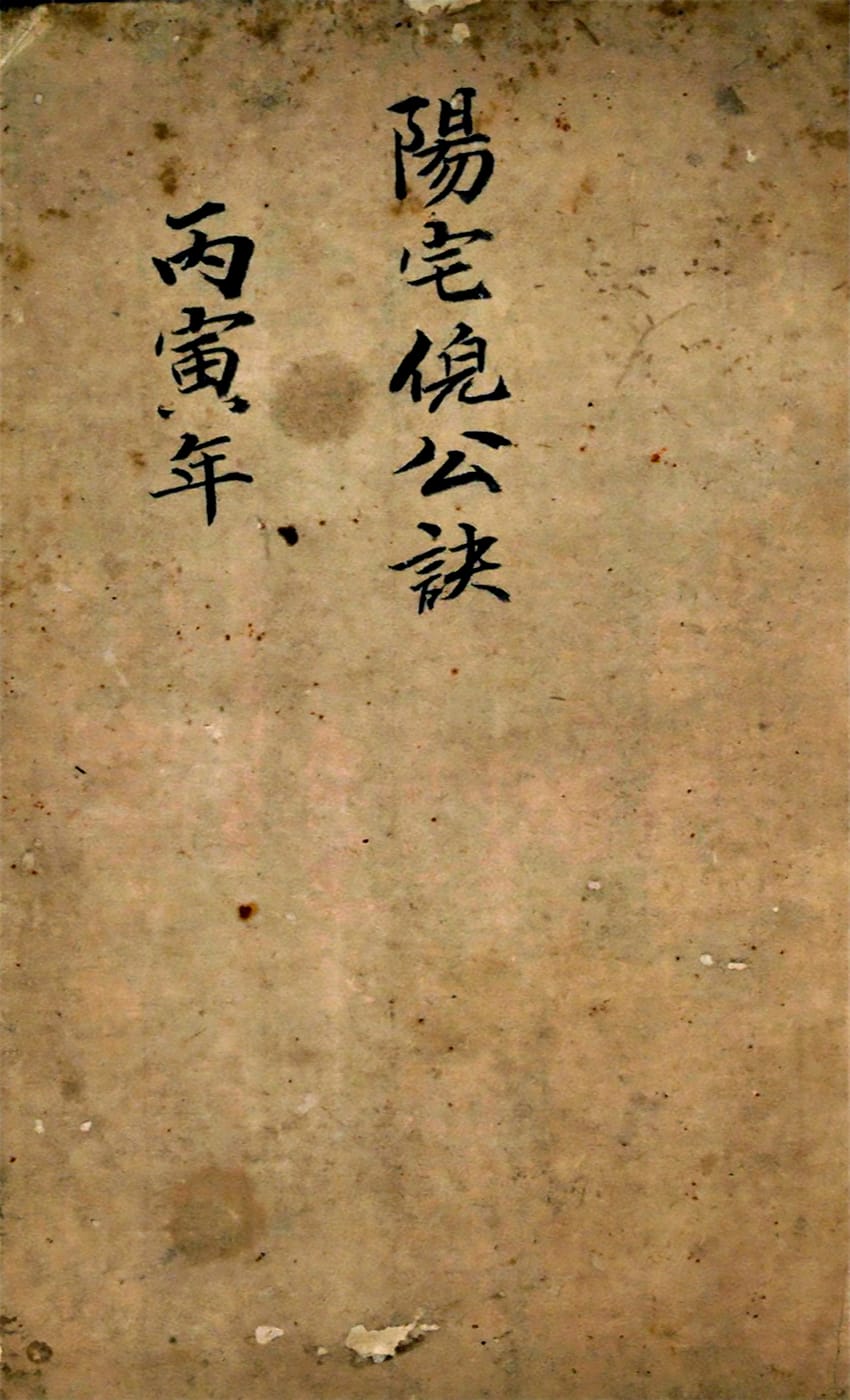 陽宅倪公訣
丙寅年